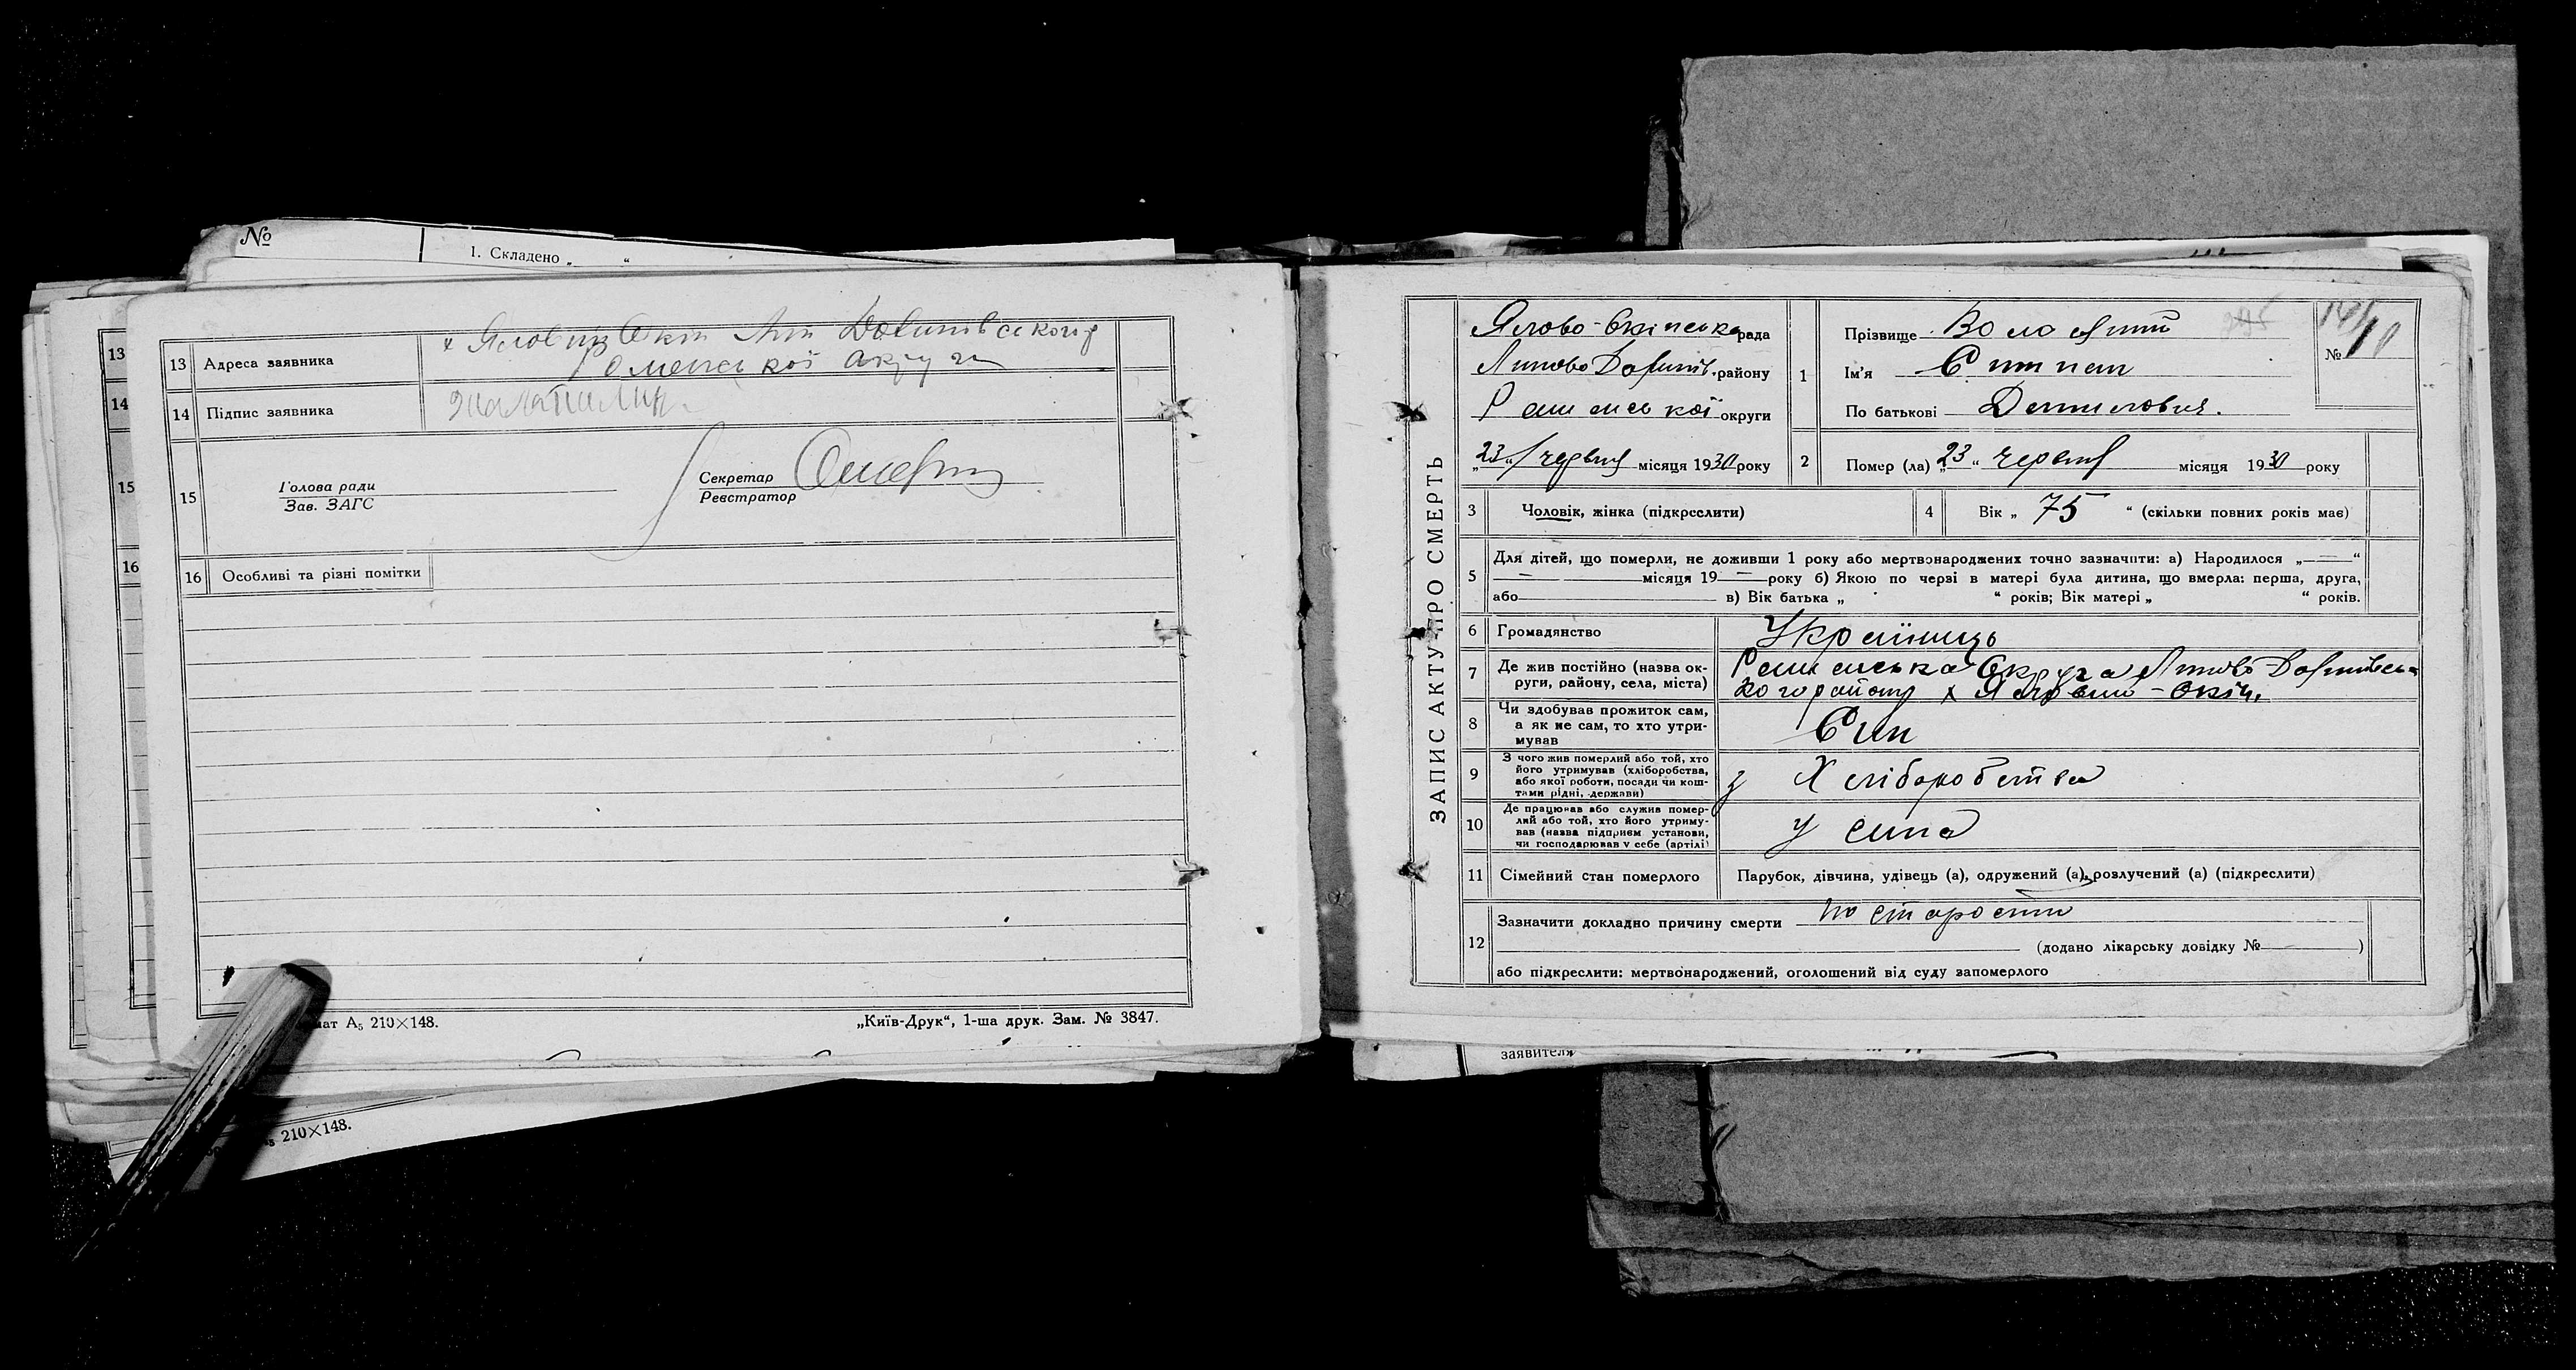 №
1. Складено „ “
13
14
15
16
13 Адреса заявника х Яловий Окіп Лип Долинівського р
Роменської округи
14 Підпис заявника
15 Голова ради
Зав. ЗАГС
Секретар
Реєстратор
16 Особливі та різні помітки
мат А₅ 210×148.
„Київ-Друк“, 1-ша друк. Зам. № 3847.
210×148.
ЗАПИС АКТУ ПРО СМЕРТЬ
Ялово-Окіпська рада
Липово Долинів. району
Роменської округи
„23“ червня місяця 1930 року
1 Прізвище
Ім'я Степан
По батькові Данилович.
№ 10
2 Помер (ла) „23“ червня місяця 1930 року
3 Чоловік, жінка (підкреслити)
4 Вік „ 75 “ (скільки повних років має)
5 Для дітей, що померли, не доживши 1 року або мертвонароджених точно зазначити: а) Народилося „ — “
— місяця 19 — року б) Якою по черзі в матері була дитина, що вмерла: перша, друга,
або в) Вік батька „ “ років; Вік матері „ “ років.
6 Громадянство Українець
7 Де жив постійно (назва округи, району, села, міста) Роменська Округа Липово Долинівсь-
кого району х Яловий-Окіп.
8 Чи здобував прожиток сам,
а як не сам, то хто утри-
мував
Син
9 З чого жив померлий або той, хто
його утримував (хліборобства,
або якої роботи, посади чи кош-
тами рідні, держави)
з Хліборобства
10 Де працював або служив помер-
лий або той, хто його утриму-
вав (назва підприєм установи,
чи господарював у себе (артілі)
У сина
11 Сімейний стан померлого Парубок, дівчина, удівець (а), одружений (а), розлучений (а) (підкреслити)
12 Зазначити докладно причину смерти по старости
(додано лікарську довідку № )
або підкреслити: мертвонароджений, оголошений від суду запомерлого
заявителя